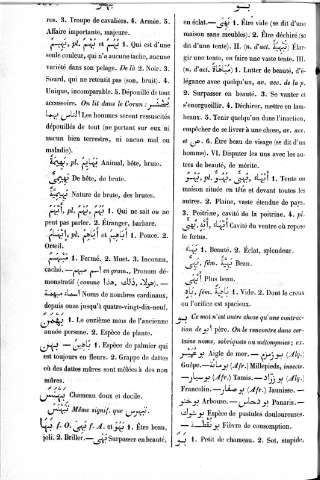 res. 3. Troupe de cavaliers. 4. Armée. 5.
Affaire importante, majeure.
بَهِيم, pl. بُهُم et بُهْم 1. Qui est d'une
seule couleur, qui n'a aucune tache, aucune
variété dans son pelage. De là 2. Noir. 3.
Sourd, qui ne retentit pas (son, bruit). 4.
Unique, incomparable. 5. Dépouillé de tout
accessoire. On lit dans le Coran :
الناس بهما Les hommes seront ressuscités
dépouillés de tout (ne portant sur eux ni
aucun bien terrestre, ni aucun mal ou
maladie).
بَهِيمَة, pl. بَهَائِم Animal, bête, brute.
بَهِيمِى De bête, de brute.
بَهِيمِيَّة Nature de brute, des brutes.
أَبْهَم, pl. بُهْم 1. Qui ne sait ou ne
peut pas parler. 2. Étranger, barbare.
إِبْهَام, pl. أَبَاهِم et أَبَاهِيم 1. Pouce. 2.
Orteil.
مُبْهَم 1. Fermé. 2. Muet. 3. Inconnu,
caché. — اسم مبهم gram., Pronom démonstratif
(comme هذا, ذلك, هولاء). —
اسماء مبهمة Noms de nombres cardinaux,
depuis onze jusqu'à quatre-vingt-dix-neuf.
بَهْمَن 1. Le onzième mois de l'ancienne
année persane. 2. Espèce de plante.
بهن — باهين 1. Espèce de palmier qui
est toujours en fleurs. 2. Grappe de dattes
où des dattes mûres sont mêlées à des non
mûres.
بَهْنَس Chameau doux et docile.
تبهنس Même signif. que تبهرس.
بَهَا f. O. بَهِى f. A. et بَهُوَ 1. Être beau,
joli. 2. Briller. — بهى Surpasser en beauté,
en éclat. — بَهِى 1. Être vide (se dit d'une
maison sans meubles). 2. Être déchiré (se
dit d'une tente). II. (n. d'act. تبهية) Élargir
une tente, en faire une vaste tente. III.
(n. d'act. مباهاة) 1. Lutter de beauté, d'élégance
avec quelqu'un, av. acc. de la p.
2. Surpasser en beauté. 3. Se vanter et
s'enorgueillir. 4. Déchirer, mettre en lambeaux.
5. Tenir quelqu'un dans l'inaction,
empêcher de se livrer à une chose, av. acc.
6. Être beau de visage (se dit d'un
homme). VI. Disputer les uns avec les autres
de beauté, de mérite.
بَهْو, pl. أَبْهَاء, بُهُوّ, بُهِىّ 1. Tente ou
maison située en tête et devant toutes les
autres. 2. Plaine, vaste étendue de pays.
3. Poitrine, cavité de la poitrine. 4. pl.
Cavité du ventre où repose
le fœtus.
بَهَاء 1. Beauté. 2. Éclat, splendeur.
بَهِىّ, fém. بَهِيَّة Beau.
أَبْهَى Plus beau.
بَاهٍ, fém. 1. Vide. 2. Dont le creux
ou l'orifice est spacieux.
بُو Ce mot n'est autre chose qu'une contraction
de ابو père. On le rencontre dans certains
noms, sobriquets ou métonymies ; ex.
بو عميرة Aigle de mer. — بو زنزوم (Alg.)
Guêpe. — (Afr.) Millepieds, insecte.
(Afr.) Tamis. — (Alg.)
Francolin. — بو صفار (Afr.) Jaunisse. —
بو خنو Arbouse. — بو دحاس Panaris. —
بو شوك Espèce de pustules douloureuses.
Fièvre de consomption.
بَوّ 1. Petit de chameau. 2. Sot, stupide.